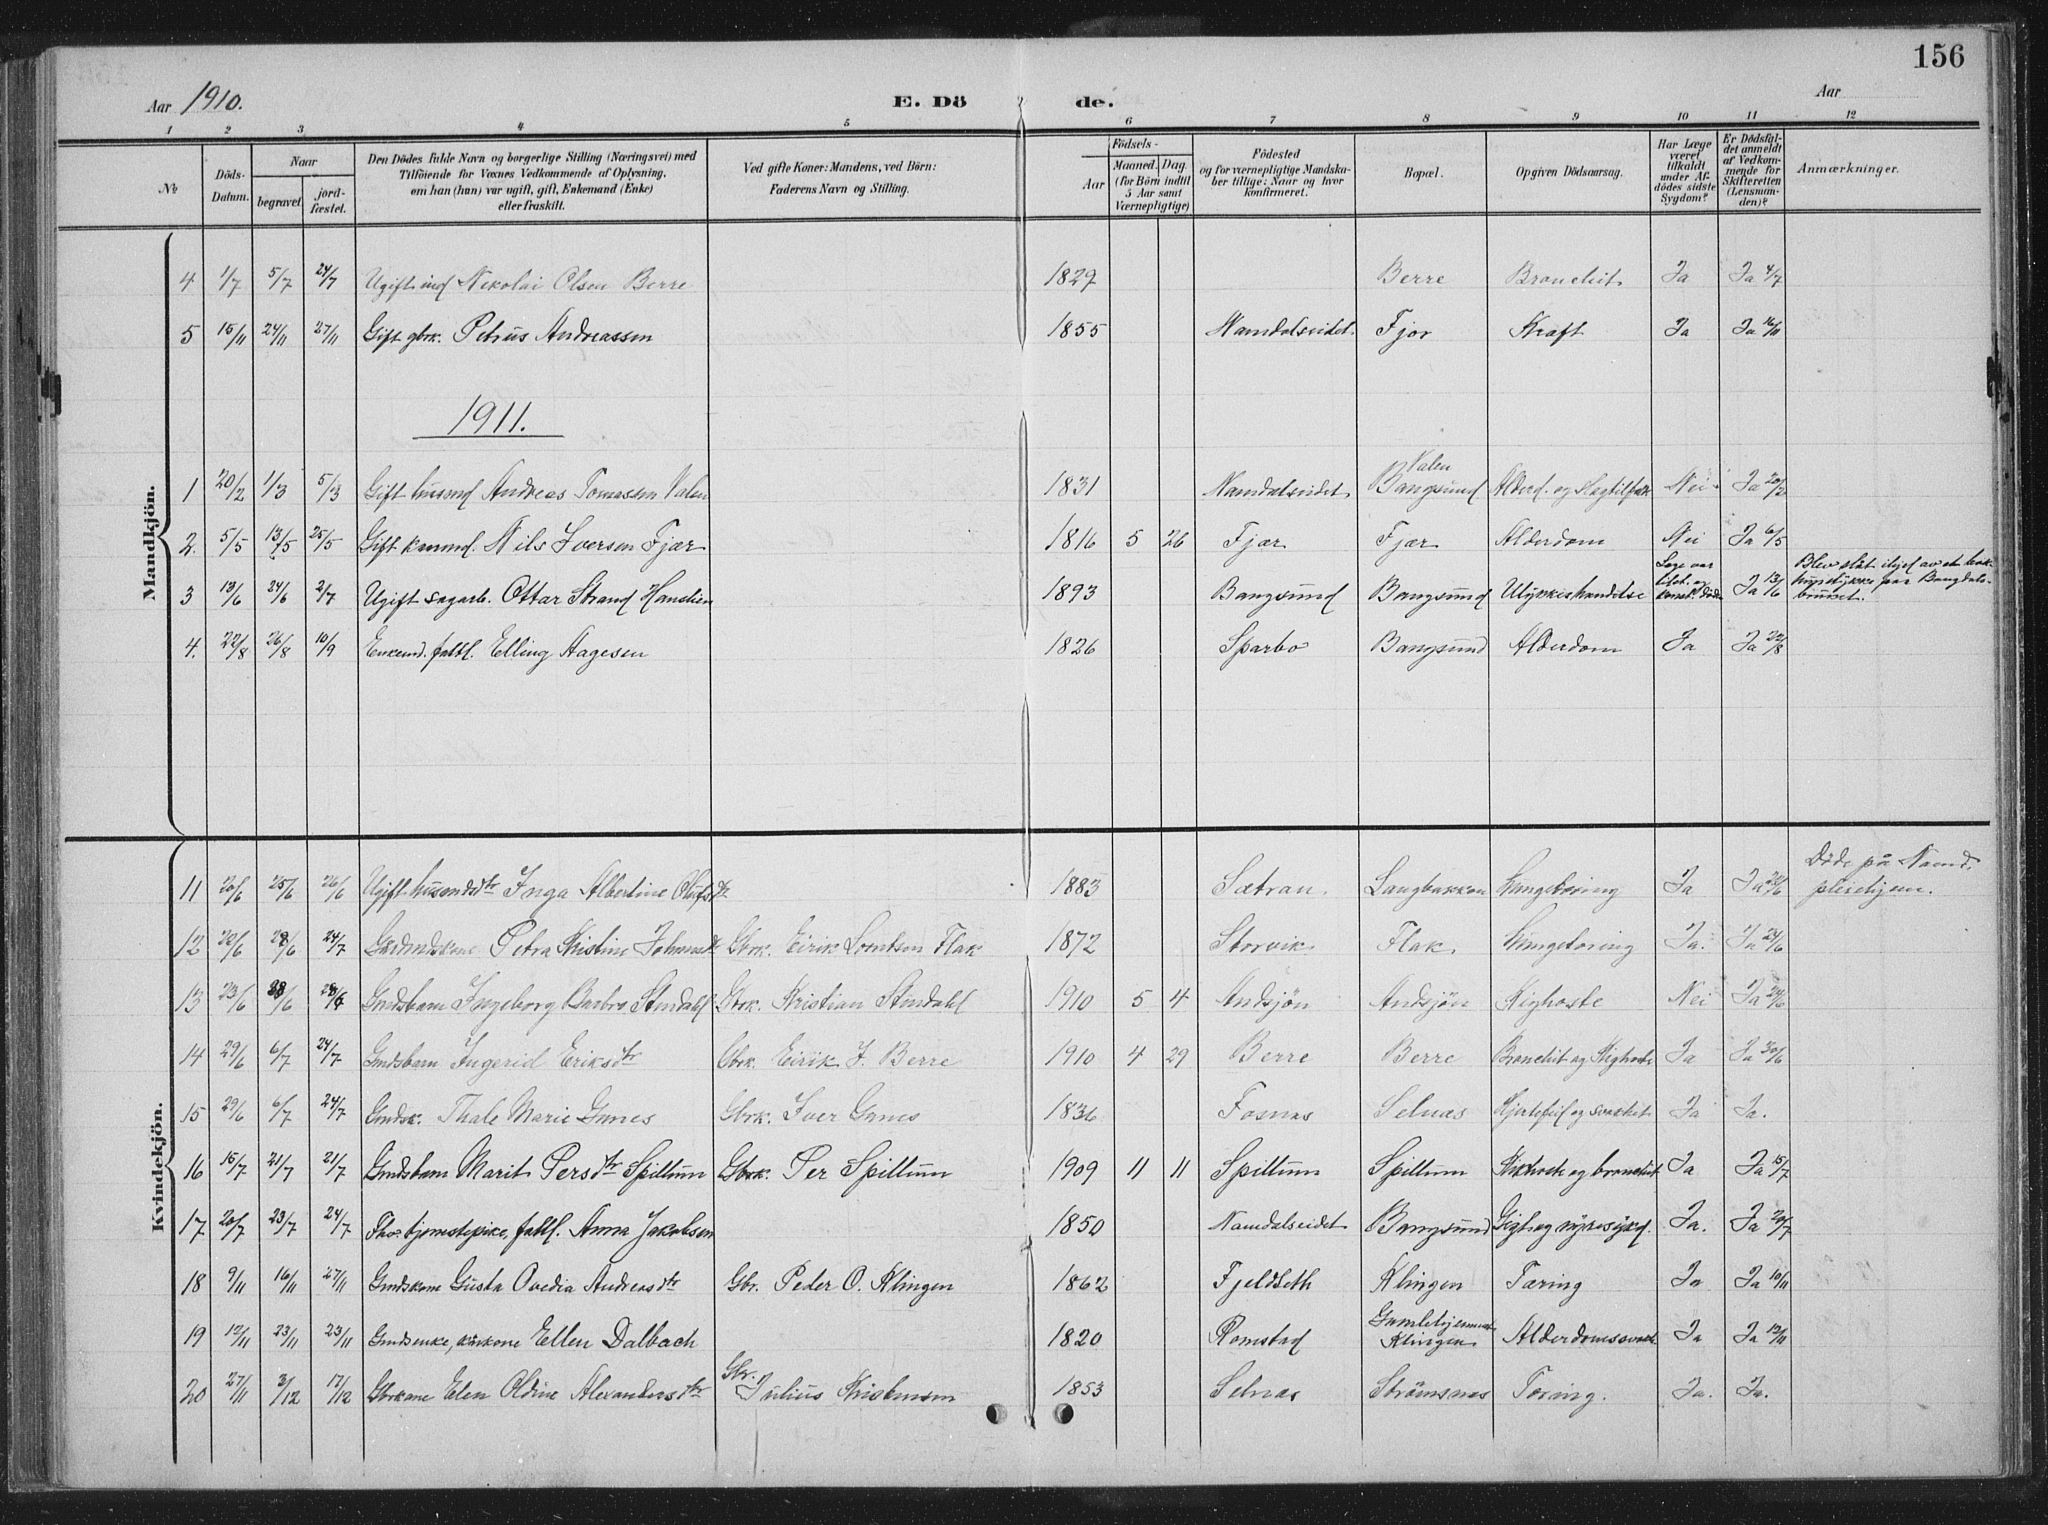 156
Aar 1910.
E. Dö de.
Aar
1 2 3 4 5 6 7 8 9 10 11 12
№
Döds-Datum.
Naar
begravet.
jord-fæstet.
Den Dödes fulde Navn og borgerlige Stilling (Næringsvei) med
Tilföiende for Voxnes Vedkommende af Oplysning,
om han (hun) var ugift, gift, Enkemand (Enke)
eller fraskilt.
Ved gifte Koner: Mandens, ved Börn:
Faderens Navn og Stilling.
Födsels-
Aar
Maaned. Dag.
(for Börn indtil
5 Aar samt
Værnepligtige)
Födested
og for værnepligtige Mandska-
ber tillige: Naar og hvor
konfirmeret.
Bopæl.
Opgiven Dödsaarsag.
Har Læge
været
tilkaldt
under Af-
dödes sidste
Sygdom?
Er Dödsfal-
det anmeldt
af Vedkom-
mende for
Skifteretten
(Lensman-
den)?
Anmærkninger.
Mandkjön.
4 1/7 5/7 24/7 Ugift ind Nikolai Olsen Berre 1829 Berre Bronchit Ja Ja 4/7
5 15/11 24/11 27/11 Gift gbrk. Petrus Andreassen 1855 Namdalseidet Fjor Kraft Ja Ja 16/11
1911.
1 20/2 1/3 5/3 Gift husmd Andreas Tomassen Valen 1831 Namdalseidet Valen Bangsund Alderd. og Slagtilfæl Nei Ja 20/2
2. 5/5 13/5 25/5 Gift kaarmd. Nils Iversen Fjær 1816 5 26 Fjær Fjær Alderdom Nei Ja 6/5
3 13/6 24/6 2/7 Ugift sagarb. Ottar Strand Hansen 1893 Bangsund Bangsund Ulykkeshændelse Læge var Ja 13/6 Blev slåt ihjel av et
4. 22/8 26/8 10/9 Enkemd. fattl. Elling Aagesen 1826 Sparbo Bangsund Alderdom Ja Ja 22/8
Kvindekjön.
11 20/6 25/6 26/6 Ugift husmdsdtr Inga Albertine Olufsdtr 1883 Sætran Langbakken Lungetæring Ja Ja 22/6 Døde på Namd. pleiehjem.
12 22/6 28/6 24/7 Gårdmdskone Petra Kristine Johnsdtr Gbrk. Eirik Lorntsen Flak 1872 Storvik Flak Lungetæring Ja. Ja 24/6
13 23/6 28/6 28/6 Gmdsbarn Ingeborg Barbro Stendahl Gbrk. Kristian Stendahl 1910 5 4 Andsjøn Andsjøn Kighoste Nei Ja 24/6
14 29/6 6/7 24/7 Gmdsbarn Ingerid Eriksdtr Gbrk. Eirik J. Berre 1910 4 29 Berre Berre Bronchit og Kighoste Ja Ja 30/6
15 29/6 6/7 24/7 Gmdsk. Thale Marie Gunnes Gbrk. Iver Gunnes 1836 Fosnæs Selnæs Hjertefeil og svækket Ja Ja.
16 15/7 21/7 21/7 Gmdsbarn Marit Persdtr Spillum Gbrk. Per Spillum 1909 11 11 Spillum Spillum Kikhost og bronchit Ja Ja 15/7
17 20/7 23/7 24/7 Fhv. tjenestepike, fattl. Anna Jakobsen 1850 Namdalseidet Bangsund Gigt og nyresykd. Ja. Ja 20/7
18 9/11 16/11 27/11 Gmdskone Gusta Ovedia Andreasdtr Gbr. Peder O. Klingen 1862 Fjeldseth Klingen Tæring Ja Ja 10/11
19 12/11 23/11 23/11 Gmdsenke, kårkone Ellen Dalbach 1820 Romstad Gamlehjemmet Klingen Alderdomssvak Ja Ja 12/11
20 27/11 3/12 17/12 Gbrkone Elen Oldine Alexandersdtr Gbr. Julius Kristensen 1853 Selnæs Strømsnæs Tæring. Ja. Ja.